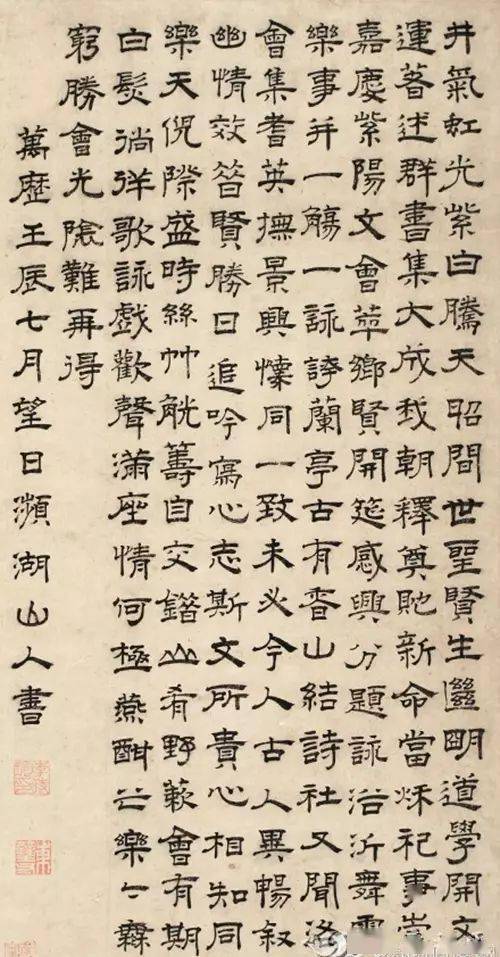 井氣虹光紫白騰天昭間世聖賢生繼明道學開文
運著述群書集大成我朝釋奠貤新命當秌祀事崇
嘉慶紫陽文會萃鄉賢開筵感興分題詠浴沂舞雩
樂事并一觴一詠誇蘭亭古有香山結詩社又聞洛
會集耆英撫景興懷同一致未必今人古人異暢叙
幽情效昔賢勝日追吟寫心志斯文所貴心相知同
樂天倪際盛時絲竹觥籌自交錯山肴野蔌會有期
白髮徜徉歌詠戲歡聲滿座情何極燕酣之樂〻無
窮勝會光陰難再得
萬歷壬辰七月望日瀕湖山人書